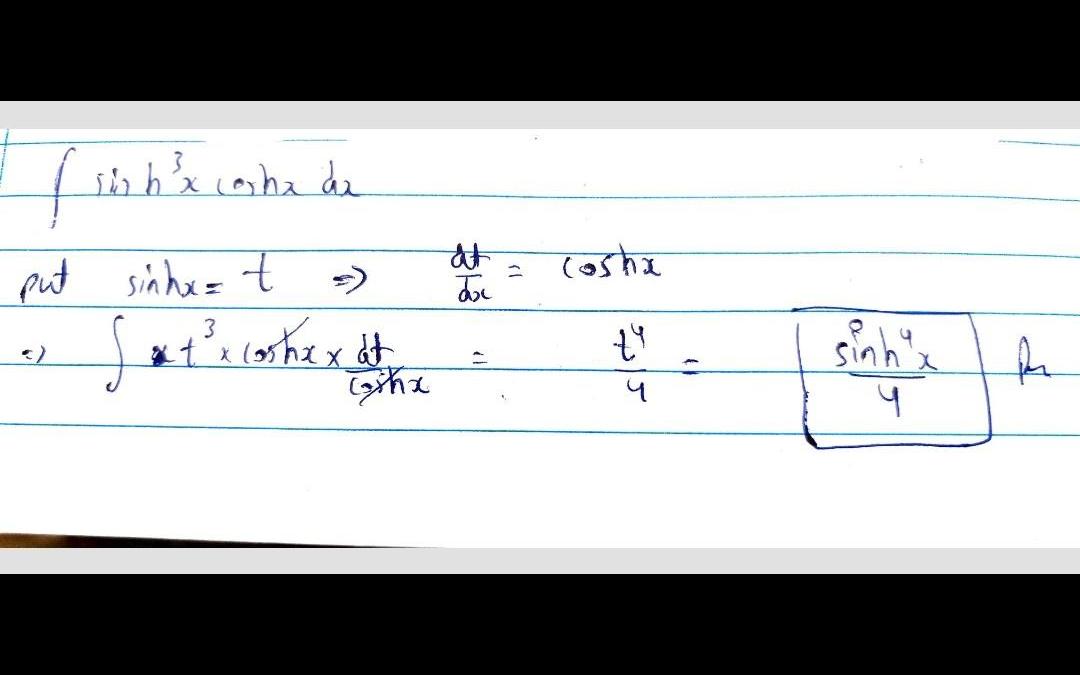 ∫ sinh³x coshx dx
put sinhx = t => dt/dx = coshx
=> ∫ t³ × coshx × dt/coshx = t⁴/4 = sinh⁴x/4